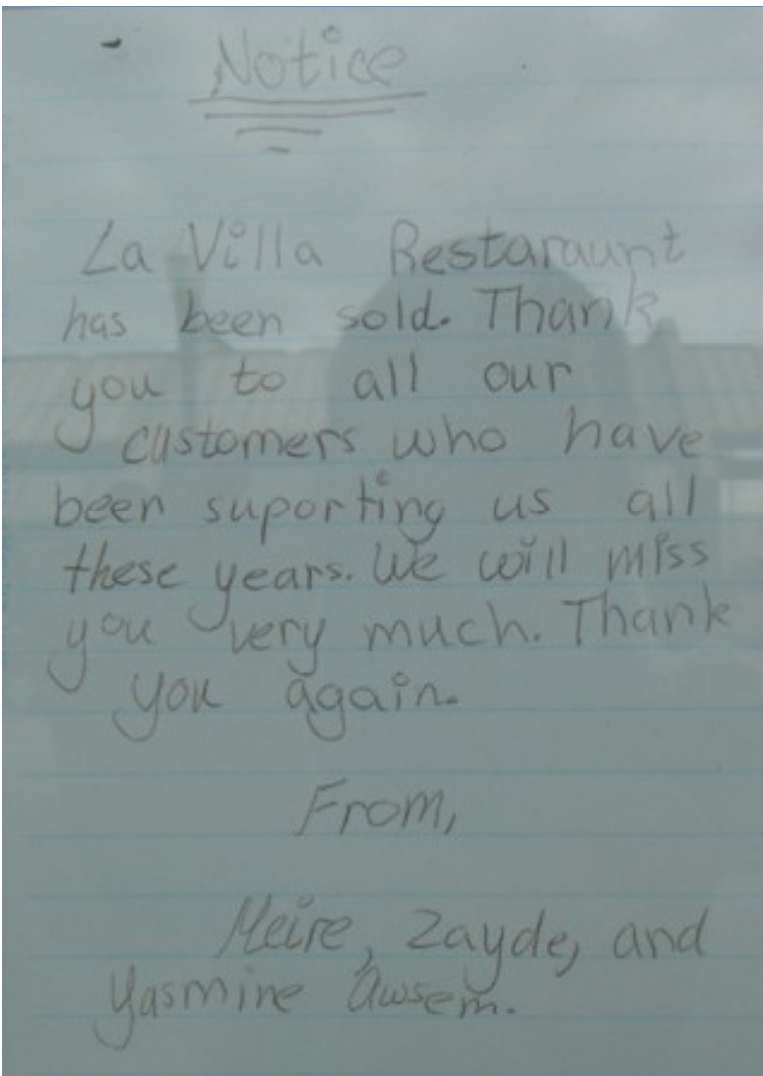 Notice
La Villa Restaraunt
has been sold. Thank
you to all our
customers who have
been suporting us all
these years. We will miss
you very much. Thank
you again.
From,
Meire, Zayde, and
Yasmine Awsem.